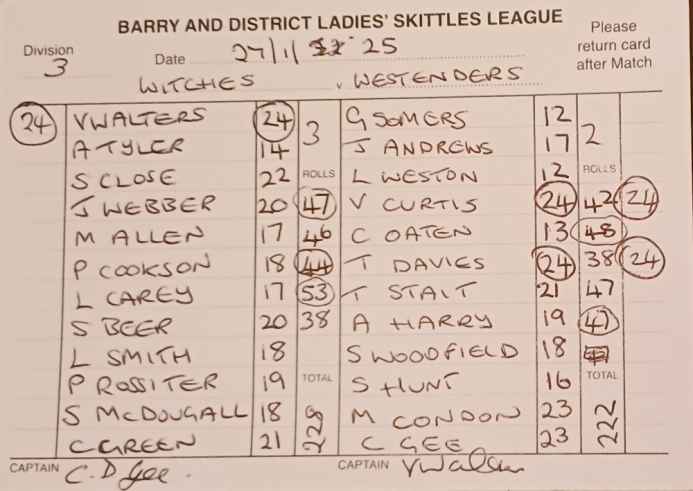 BARRY AND DISTRICT LADIES' SKITTLES LEAGUE
Please return card after Match
Division 3
Date 27/11 25
WITCHES v. WESTENDERS
24 V WALTERS 24 3 G SOMERS 12 2
A TYLER 14 J ANDREWS 17
S CLOSE 22 ROLLS L WESTON 12 ROLLS
J WEBBER 20 47 V CURTIS 24 42 24
M ALLEN 17 46 C OATEN 13 48
P COOKSON 18 44 T DAVIES 24 38 24
L CAREY 17 53 T STAIT 21 47
S BEER 20 38 A HARRY 19 47
L SMITH 18 S WOODFIELD 18
P ROSSITER 19 TOTAL S HUNT 16 TOTAL
S McDOUGALL 18 228 M CONDON 23 222
C GREEN 21 C GEE 23
CAPTAIN C.D Gee. CAPTAIN